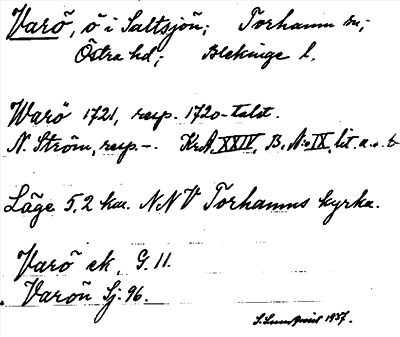 Varö, ö i Saltsjön; Torhamn sn;
Östra hd; Blekinge l.
Warö 1721, resp. 1720-talet.
N. Ström, resp. -. KrA XXIV, B. N:o IX, lit. a. o. b
Läge 5,2 km. NNV Torhamns kyrka.
Varö ek. G. 11.
Varön Sj. 96.
S. Lundqvist 1937.